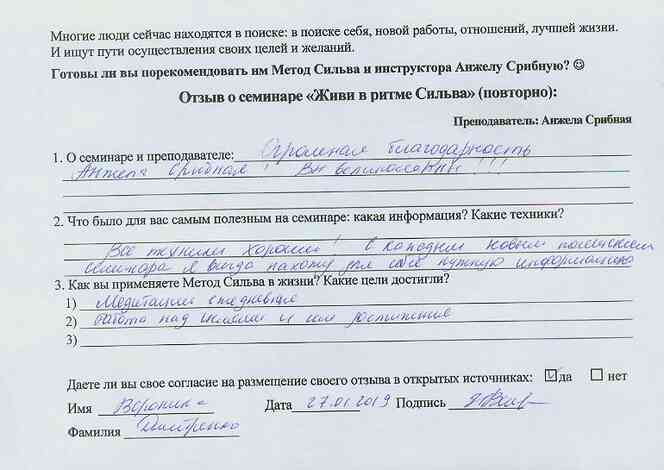 Многие люди сейчас находятся в поиске: в поиске себя, новой работы, отношений, лучшей жизни.
И ищут пути осуществления своих целей и желаний.
Готовы ли вы порекомендовать им Метод Сильва и инструктора Анжелу Срибную? ☺
Отзыв о семинаре «Живи в ритме Сильва» (повторно):
Преподаватель: Анжела Срибная
1. О семинаре и преподавателе: Огромная благодарность
Анжела Срибная! Вы великолепны!!!
2. Что было для вас самым полезным на семинаре: какая информация? Какие техники?
Все техники хороши! С каждым новым посещением
семинара я всегда нахожу для себя нужную информацию
3. Как вы применяете Метод Сильва в жизни? Какие цели достигли?
1) Медитации ежедневные
2) Работа над целями и их достижение
3)
Даете ли вы свое согласие на размещение своего отзыва в открытых источниках: ☑ да ☐ нет
Имя Вероника Дата 27.01.2019 Подпись
Фамилия Дмитренко